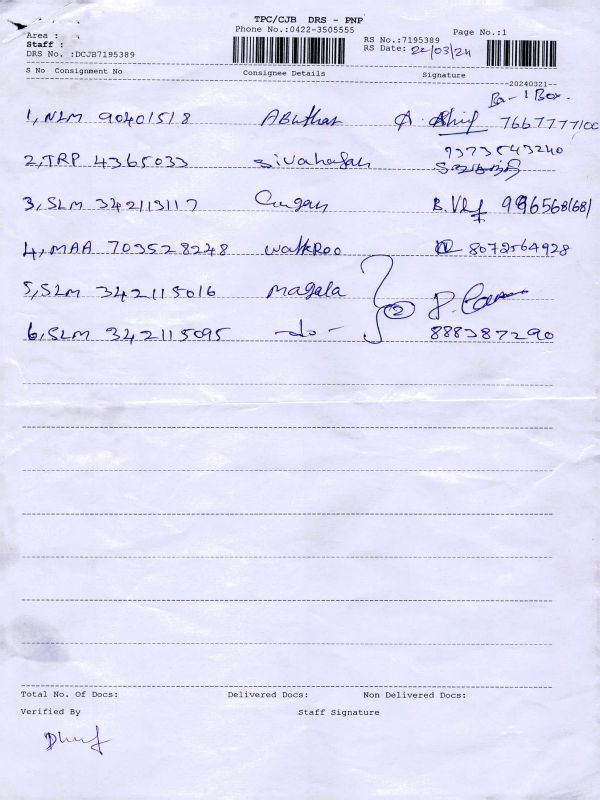 TPC/CJB DRS - PNP
Phone No.:0422-3505555
Area :
Staff :
DRS No. :DCJB7195389
RS No.:7195389
RS Date: 22/03/24
Page No.:1
S No Consignment No Consignee Details Signature
--20240321--
1, NLM 90401518 Abuthar 7667777100
9373543240
2, TRP 4365033
3, SLM 342113117
4, MAA 703528248 WalkRoo 8072564928
5, SLM 342115016 Magala
6, SLM 342115095 -do- 2 888387290
Total No. Of Docs: Delivered Docs: Non Delivered Docs:
Verified By Staff Signature